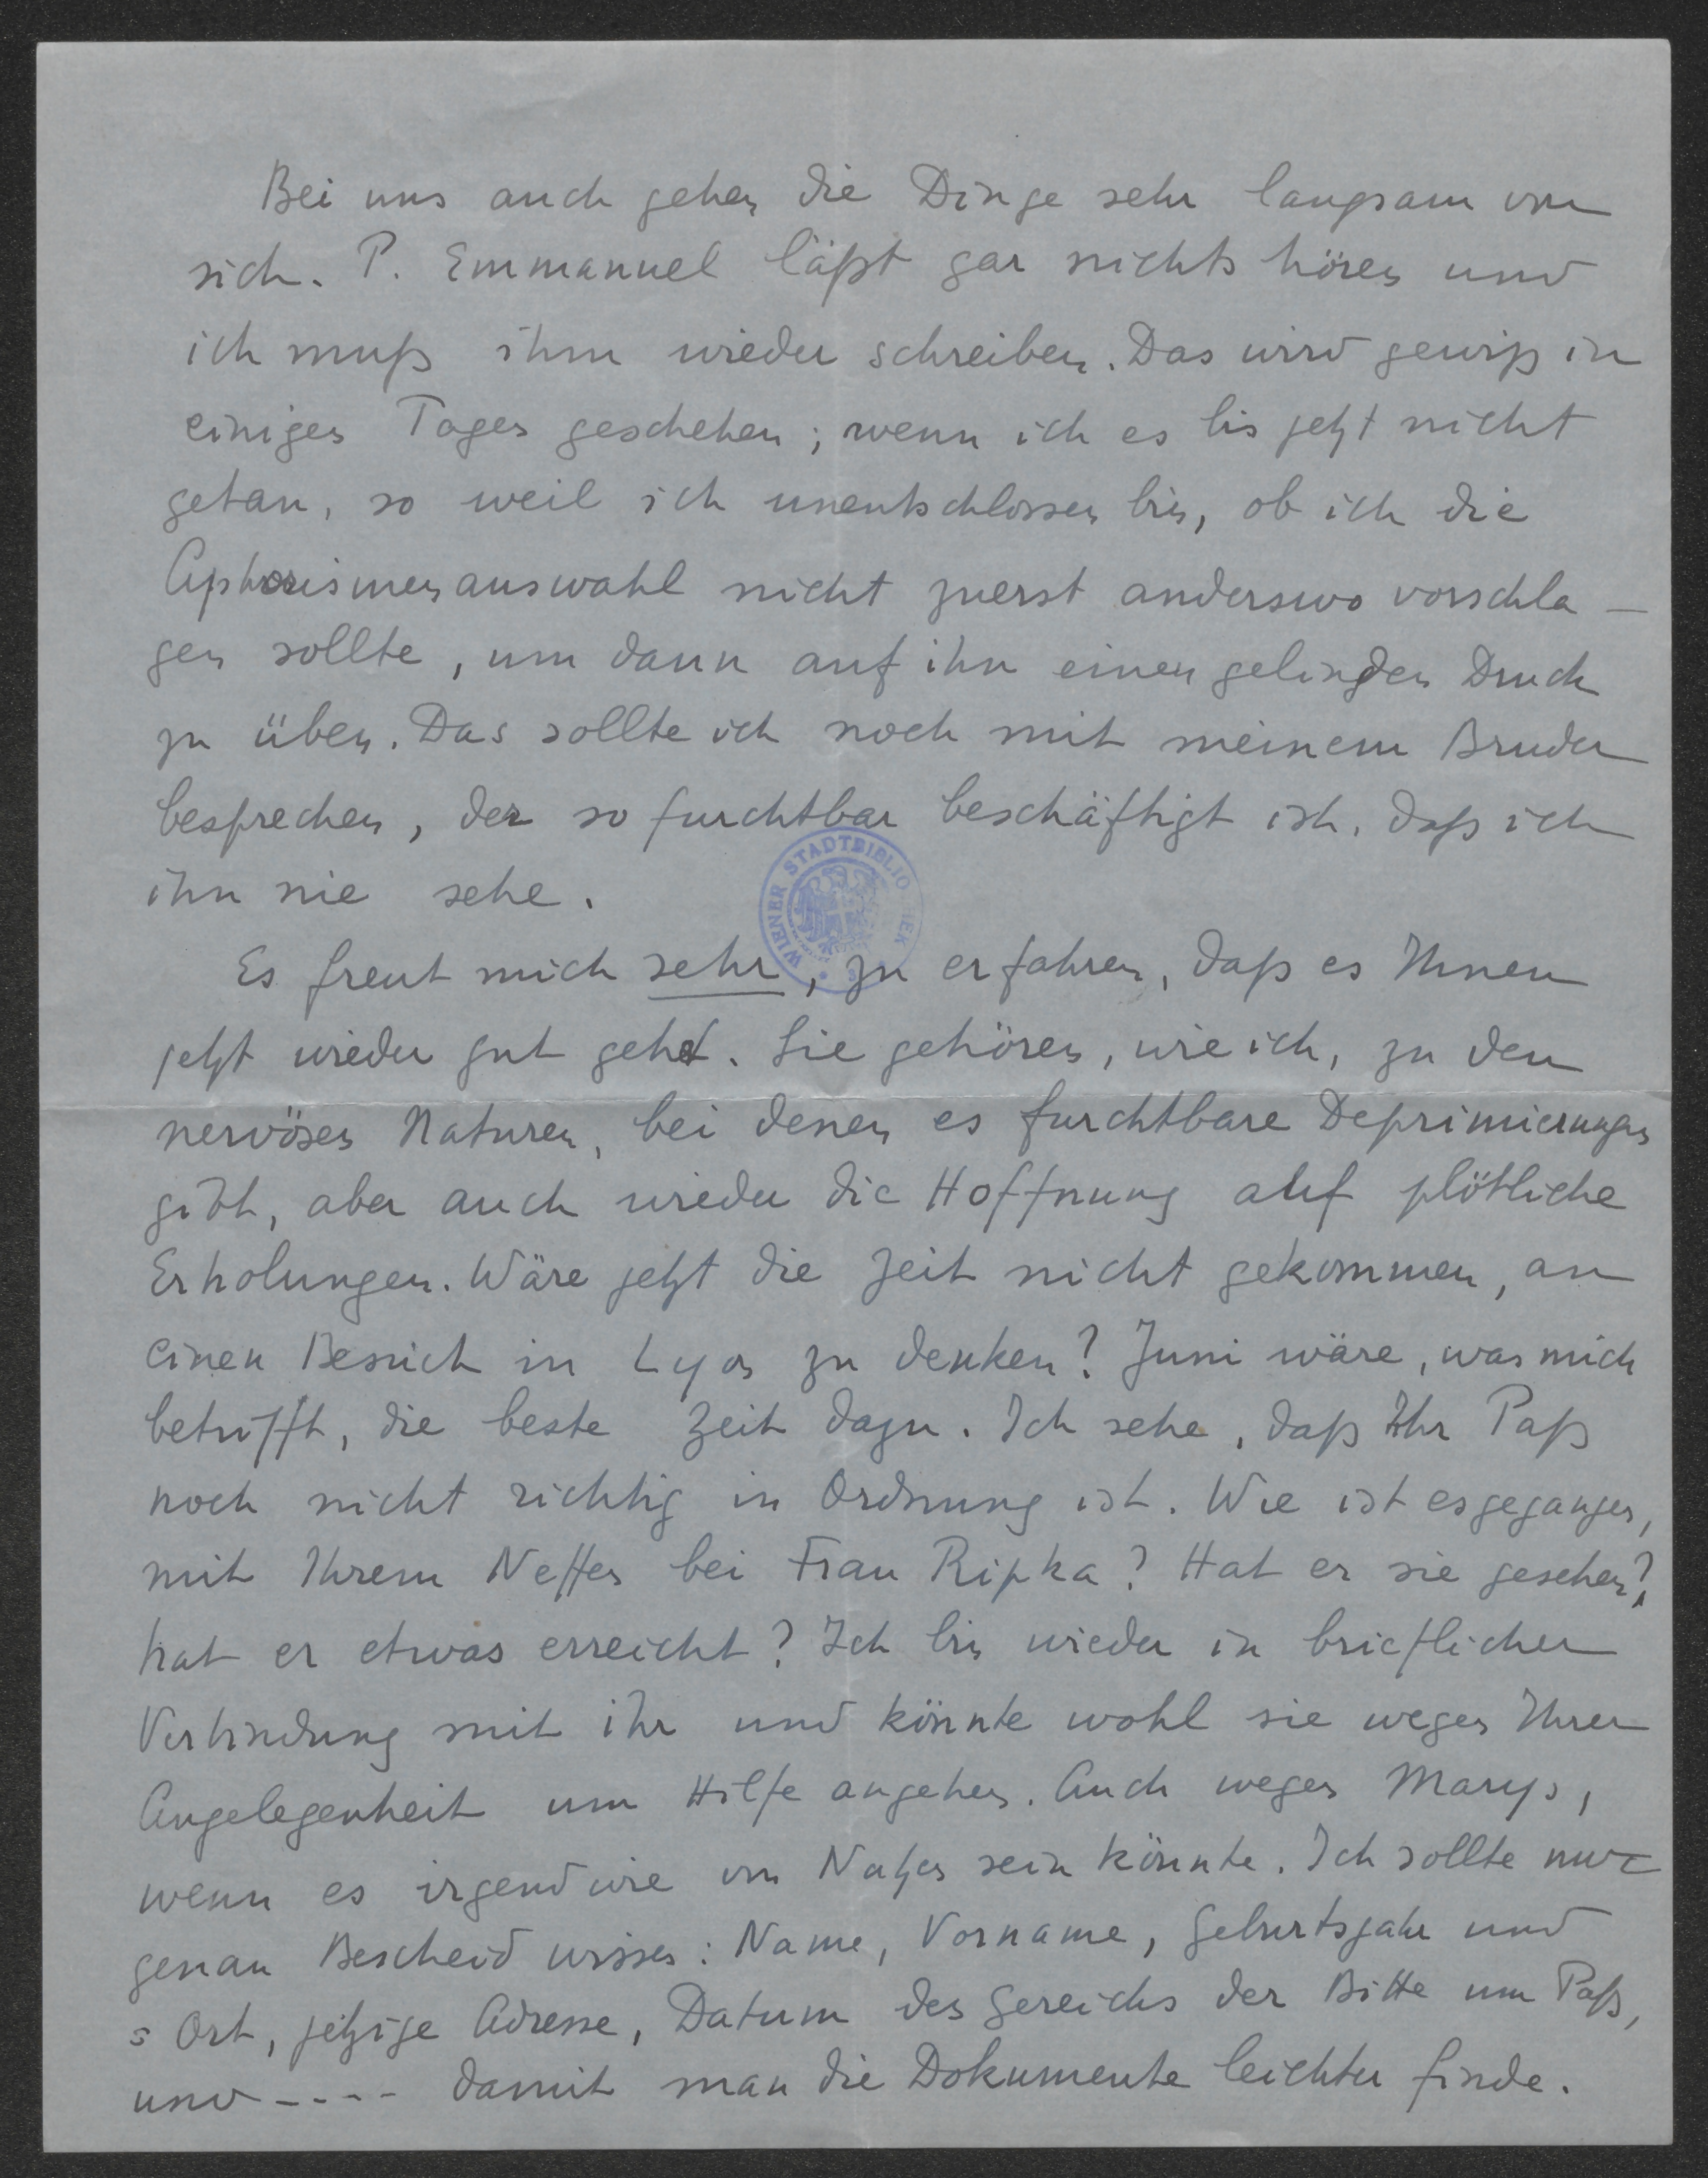 Bei uns auch gehen die Dinge sehr langsam vor
sich. P. Emmanuel läßt gar nichts hören und
ich muß ihm wieder schreiben. Das wird gewiß in
einigen Tagen geschehen; wenn ich es bis jetzt nicht
getan, so weil ich unentschlossen bin, ob ich die
Aphorismenauswahl nicht zuerst anderswo vorschla-
gen sollte, um dann auf ihn einen gelinden Druck
zu üben. Das sollte ich noch mit meinem Bruder
besprechen, der so furchtbar beschäftigt ist, daß ich
ihn nie sehe.
WIENER STADTBIBLIOTHEK
Es freut mich sehr, zu erfahren, daß es Ihnen
jetzt wieder gut gehet. Sie gehören, wie ich, zu den
nervösen Naturen, bei denen es furchtbare Deprimierungen
gibt, aber auch wieder die Hoffnung auf plötzliche
Erholungen. Wäre jetzt die Zeit nicht gekommen, an
einen Besuch in Lyon zu denken? Juni wäre, was mich
betrifft, die beste Zeit dazu. Ich sehe, daß Ihr Paß
noch nicht richtig in Ordnung ist. Wie ist es gegangen,
mit Ihrem Neffen bei Frau Ripka? Hat er sie gesehen?,
hat er etwas erreicht? Ich bin wieder in brieflicher
Verbindung mit ihr und könnte wohl sie wegen Ihrer
Angelegenheit um Hilfe angehen. Auch wegen Marys,
wenn es irgendwie von Nutzen sein könnte. Ich sollte nur
genau Bescheid wissen: Name, Vorname, Geburtsjahr und
s Ort, jetzige Adresse, Datum des Gereichs der Bitte um Paß,
und ---- damit man die Dokumente leichter finde.